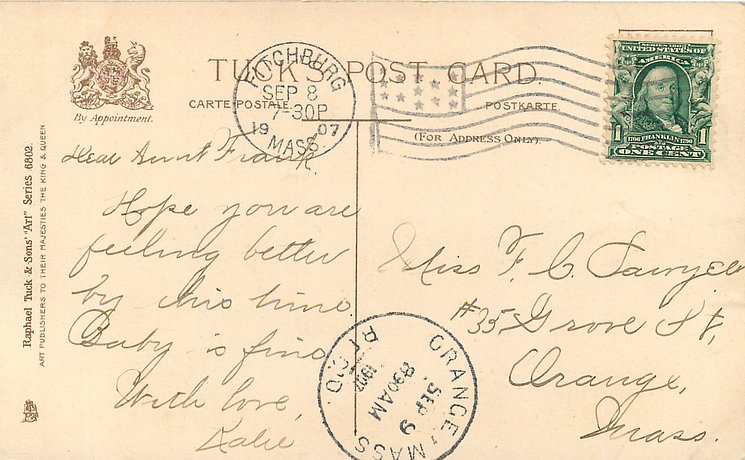 TUCK'S POST CARD.
CARTE POSTALE.
POSTKARTE.
(FOR ADDRESS ONLY).
By Appointment.
Raphael Tuck & Sons' "Art" Series 6802.
ART PUBLISHERS TO THEIR MAJESTIES THE KING & QUEEN.
FITCHBURG
SEP 8
7-30P
1907
MASS.
SERIES 1902
UNITED STATES OF
AMERICA
1706 FRANKLIN 1790
1 1
POSTAGE
ONE CENT
Dear Aunt Frank
Hope you are
feeling better
by this time.
Baby is fine
With love,
Katie
Miss F. C. Sawyer
#35 Grove St,
Orange,
Mass.
ORANGE, MASS
SEP 9
830AM
1907
REC'D.